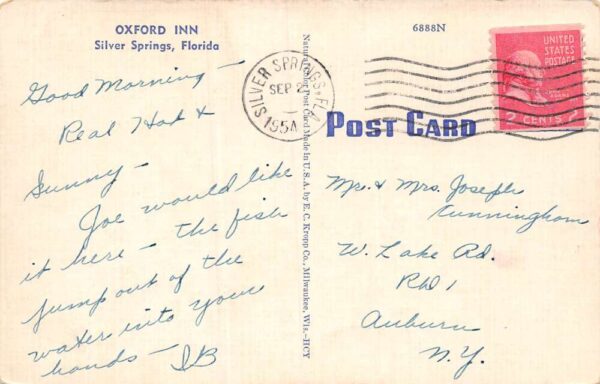 OXFORD INN
Silver Springs, Florida
6888N
Good Morning —
Real Hot &
Sunny —
Joe would like
it here — the fish
jump out of the
water into your
hands — IB
SILVER SPRINGS, FLA.
SEP 2
1954
Natural Color Post Card Made in U.S.A. by E. C. Kropp Co., Milwaukee, Wis.—HCY
POST CARD
UNITED
STATES
POSTAGE
2 CENTS 2
Mr. & Mrs. Joseph
Cunningham
W. Lake Rd.
RD 1
Auburn
N.Y.